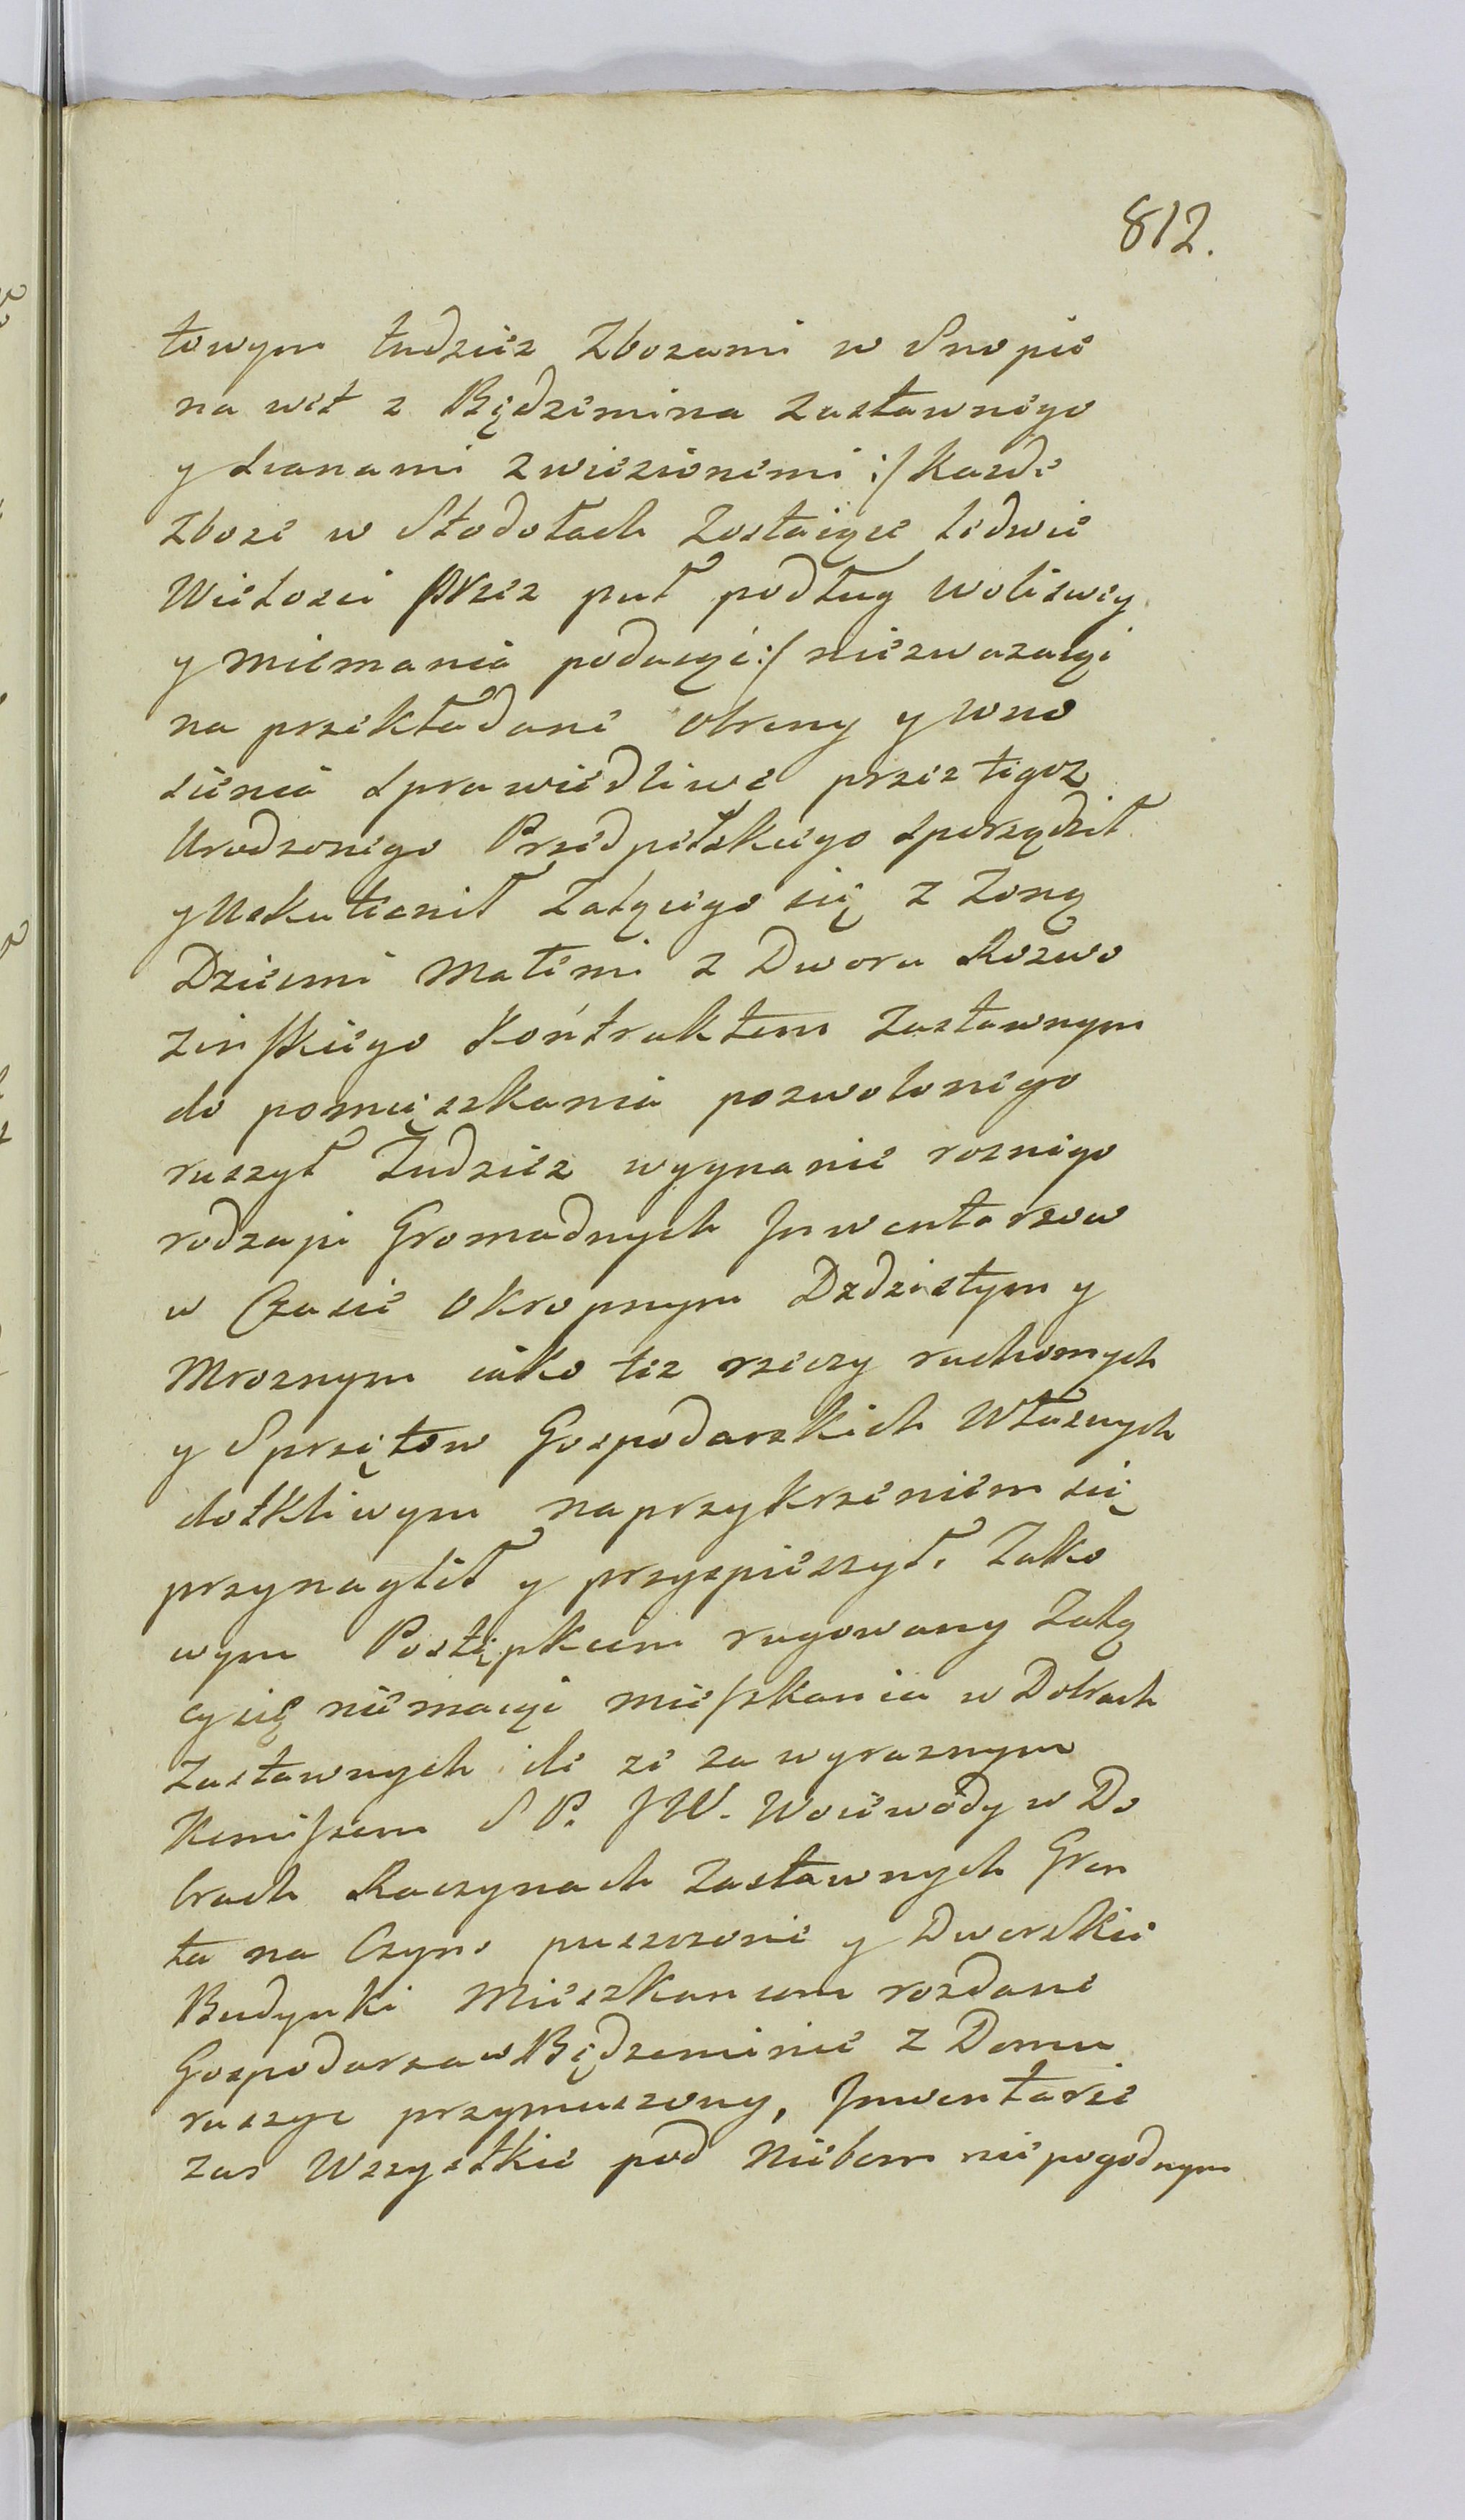 812.
towym tudziez Zbozami w Snopie
na wet z Będzimina zastawnego
y sianami zwiezionemi :/ Kazde
zboze w Stodołach Zostaiące ledwie
Wielosci przez puł podług woliswey
y mnimania podaiąc :/ niezwazaiąc
na przekładane obrony y wno
sienia sprawiedliwe przeztegoz
Urodzonego Przedpełskiego sporządził
y Uskutecznił Zalącego się z Zoną
Dziecmi małemi z Dworu Rozwo
zinskiego Kontraktem Zastawnym
do pomięszkania pozwolonego
ruszył Tudziez wygnanie roznego
rodzaju Gromadnych Inwentarzow
w Czasie okropnym Dzdzistym y
Mroznym iako tez rzeczy ruchomych
y Sprzętow Gospodarskich Własnych
dotkliwym naprzykrzeniem się
przynaglił y przyspieszył. Tako
wym Postępkiem rugowany Zalą
cy się niemaiąc mieszkania w Dobrach
Zastawnych ile ze za wyraznym
Konsensem S P. JW. Woiewody w Do
brach Raczynach Zastawnych Grun
ta na Czynsz puszczone y Dworskie
Budynki Mieszkancom rozdane
Gospodarza w Będzeminie z Domu
ruszyc przymuszony, Inwentarze
zas Wszystkie pod Niebem niepogodnym